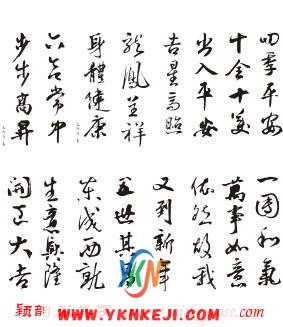 四季平安
十全十美
出入平安
吉星高照
龍鳳呈祥
身體健康
六合常中
步步高昇
一團和氣
萬事如意
依然故我
又到新年
五世其昌
東成西就
生意興隆
開正大吉
www.YKNKEJI.COM